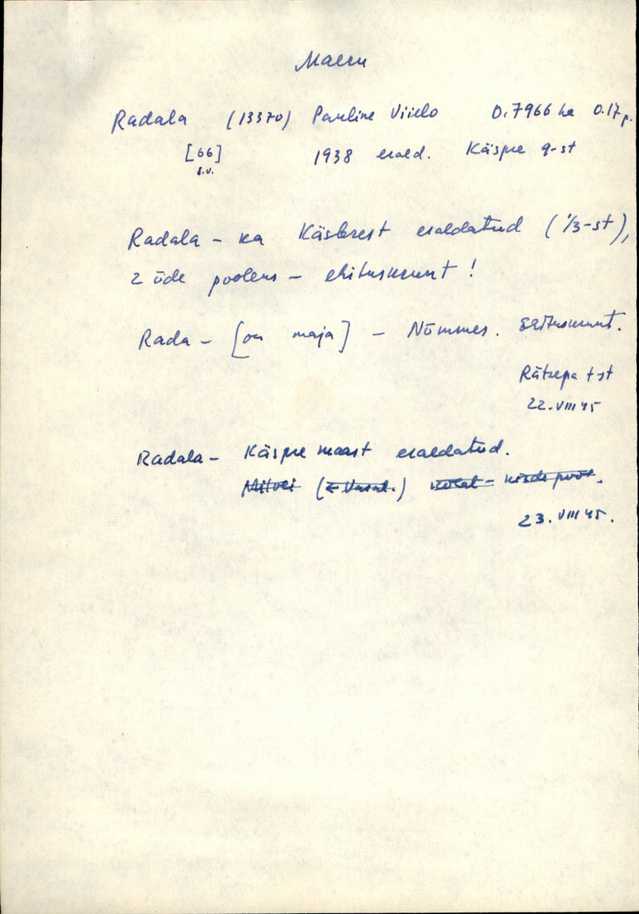 Radala (13370) Pauline Viielo 0.7966 ha 0.17 p.
[66] 1938 erald. Käspre 9-st
s.v.
Radala – ka eraldatud (1/3-st),
2 õde pooleks – ehituskrunt!
Rada – [on maja] – Nõmmes. Ehituskrunt.
Rätsepa t-st
22. VIII 45
Radala – Käspre maast eraldatud.
23. VIII 45.